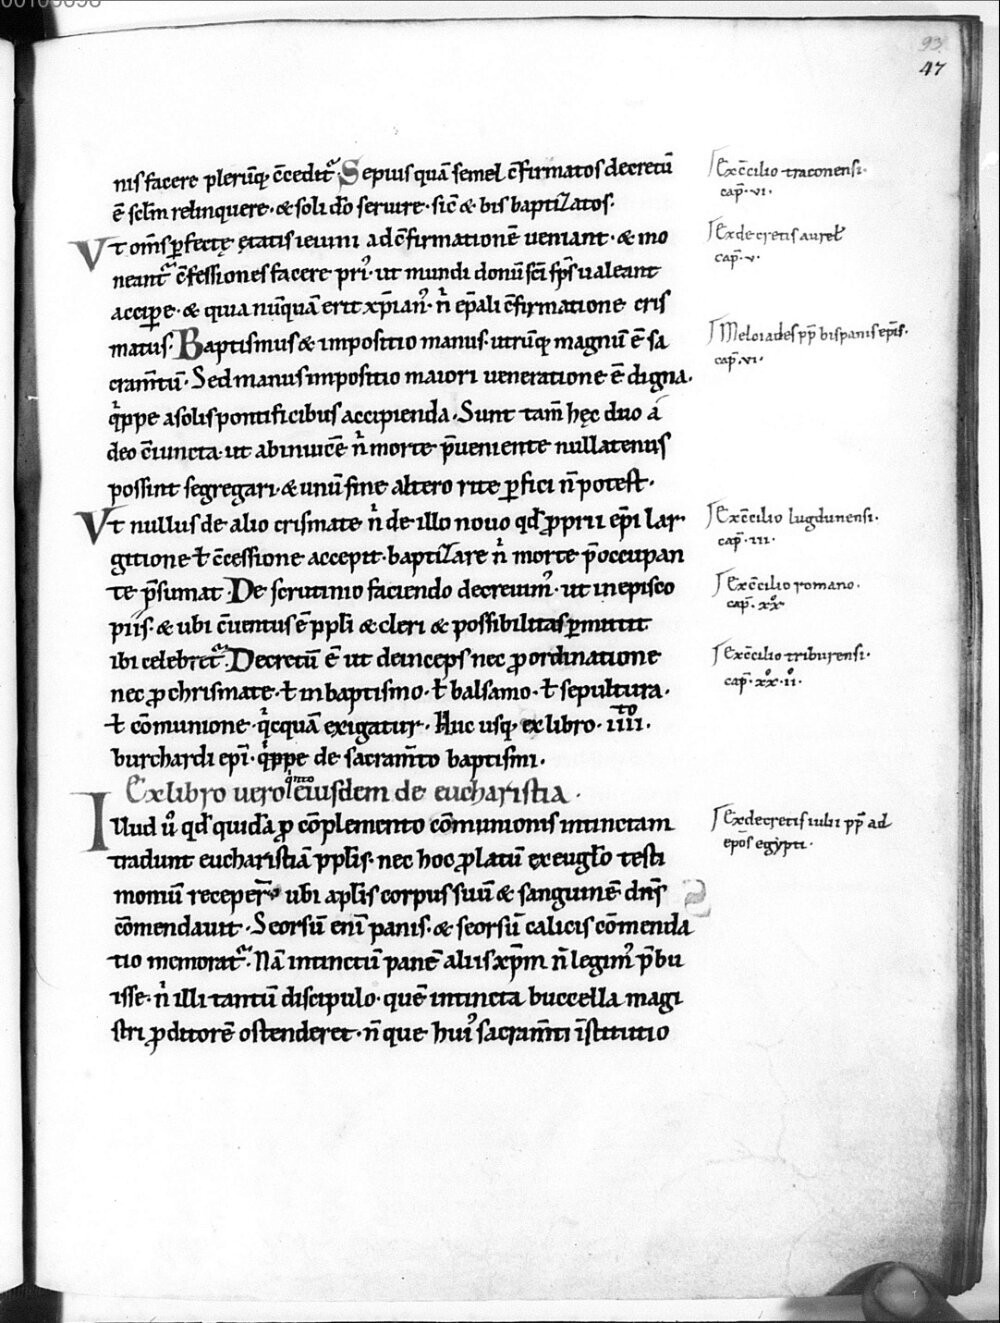 00106098
93.
47
nis facere plerūq; c̄cedit᷑. Sepius quā semel c̄firmatos decretū
ē sclm relinquere · & soli dō seruire · sic̄ & bis baptizatos·
Vt om̄s ꝑfectę ętatis ieiuni ad c̄firmationē ueniant · & mo
neant᷑ c̄fessiones facere priꝰ · ut mundi donū sc̄i sp̄s ualeant
accipe · & quia nūquā erit xp̄ianꝰ · n̄ ep̄ali c̄firmatione cris
matus · Baptismus & impositio manus · utrūq; magnū ē sa
cram̄tū · Sed manus impositio maiori ueneratione ē digna ·
q̍ppe a solis pontificibus accipienda · Sunt tam̄ hęc duo a
deo c̄iuncta · ut abinuicē n̍ morte p̄ueniente nullatenus
possint segregari · & unū sine altero rite ꝑfici n̄ potest ·
Vt nullus de alio crismate n̍ de illo nouo qd̄ ꝓprii ep̄i lar
gitione ł c̄cessione accepit · baptizare n̍ morte p̄occupan
te p̄sumat · De scrutinio faciendo decreuimꝰ · ut in episco
piis · & ubi c̄uentus ē ppl̄i & cleri & possibilitas ꝑmittit
ibi celebret᷑. Decretū ē ut deinceps nec ꝓ ordinatione
nec ꝓ chrismate · ł in baptismo · ł balsamo · ł sepultura ·
ł cōmunione · q̍cquā exigatur · Huc usq; ex libro · iiii^to ·
burchardi ep̄i · q̍ppe de sacram̄to baptismi ·
Ex libro uero q̍nto eiusdem de eucharistia ·
Illud ū qd̄ quidā ꝓ cōplemento cōmunionis intinctam
tradunt eucharistiā ppl̄is · nec hoc ꝓlatū ex eugl̄o testi
moniū receper̄ · ubi apl̄is corpus suū & sanguinē dn̄s
cōmendauit · Seorsū eni panis · & seorsū calicis cōmenda
tio memorat᷑ · Nā intinctū panē aliis xp̄m n̄ legimꝰ p̄bu
isse · n̍ illi tantū discipulo · quē intincta buccella magi
stri ꝓditorē ostenderet · n̄ que huiꝰ sacram̄ti īstitutio
Ex c̄cilio traconensi ·
cap̄ · vi ·
Ex decretis aurel̄
cap̄ · v ·
Melciades pp̄ hispanis ep̄is ·
cap̄ · vi ·
Ex c̄cilio lugdunensi ·
cap̄ · iii ·
Ex c̄cilio romano ·
cap̄ · xx°
Ex c̄cilio triburensi ·
cap̄ · xx° · ii° ·
Ex decretis iulii pp̄ ad
ep̄os egypti ·